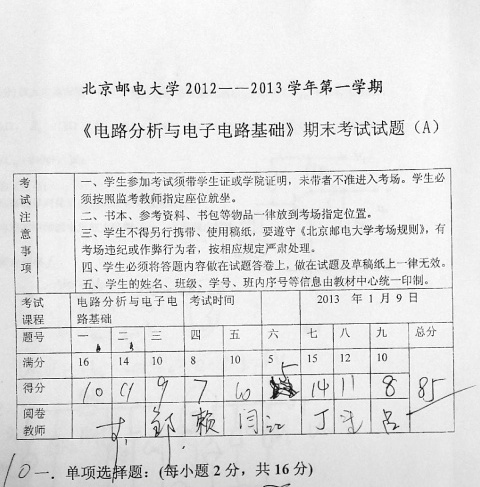 北京邮电大学2012——2013学年第一学期
《电路分析与电子电路基础》期末考试试题（A）
考试注意事项
一、学生参加考试须带学生证或学院证明，未带者不准进入考场。学生必
须按照监考教师指定座位就坐。
二、书本、参考资料、书包等物品一律放到考场指定位置。
三、学生不得另行携带、使用稿纸，要遵守《北京邮电大学考场规则》，有
考场违纪或作弊行为者，按相应规定严肃处理。
四、学生必须将答题内容做在试题答卷上，做在试题及草稿纸上一律无效。
五、学生的姓名、班级、学号、班内序号等信息由教材中心统一印制。
考试课程 电路分析与电子电路基础 考试时间 2013 年 1 月 9 日
题号 一 二 三 四 五 六 七 八 九 总分
满分 16 14 10 8 10 5 15 12 10
得分 10 11 9 7 10 5 14 11 8 85
阅卷教师 郭 赖 闫 江 丁 吕
10 一．单项选择题：(每小题 2 分，共 16 分)